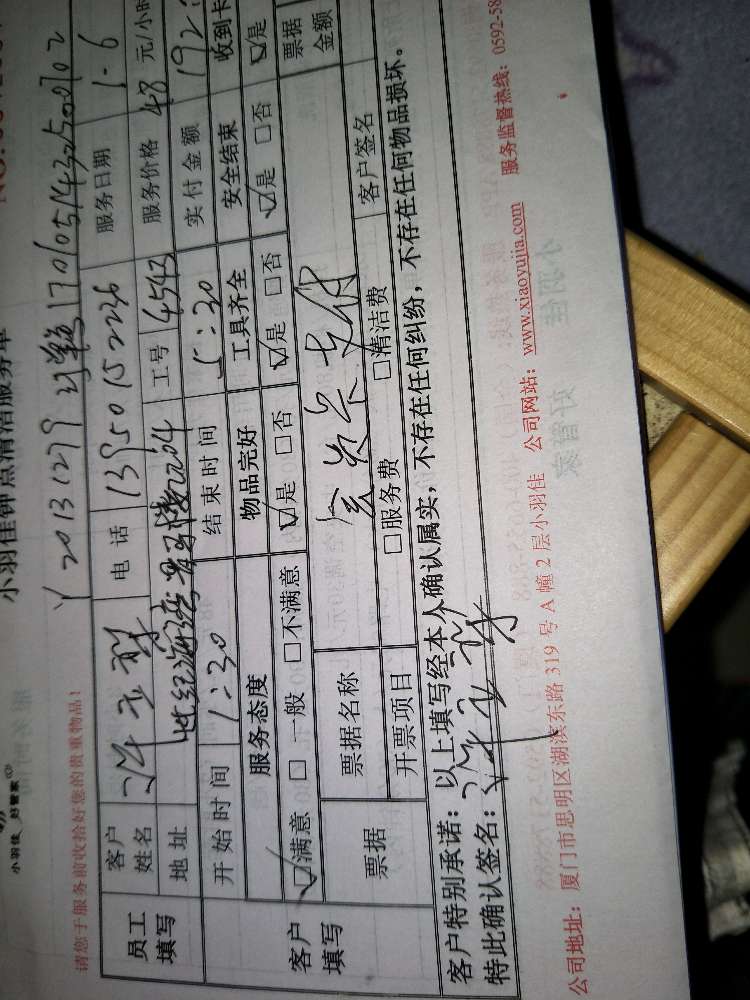 小羽佳 好管家
小羽佳钟点清洁服务单
请您于服务前收拾好您的贵重物品!
员工填写
客户姓名
电话 13950152226
服务日期 1.6
地址
工号 4543
服务价格 48 元/小时
开始时间 1:30
结束时间 5:30
实付金额 192
客户填写
服务态度
物品完好
工具齐全
安全结束
收到卡
☑满意 □一般 □不满意
☑是 □否
☑是 □否
☑是 □否
☑是
票据
票据名称
会员卡支付
票据金额
开票项目
□服务费 □清洁费
客户签名
客户特别承诺:以上填写经本人确认属实,不存在任何纠纷,不存在任何物品损坏。
特此确认签名:
公司地址:厦门市思明区湖滨东路 319 号 A 幢 2 层小羽佳 公司网站:www.xiaoyujia.com 服务监督热线:0592-58